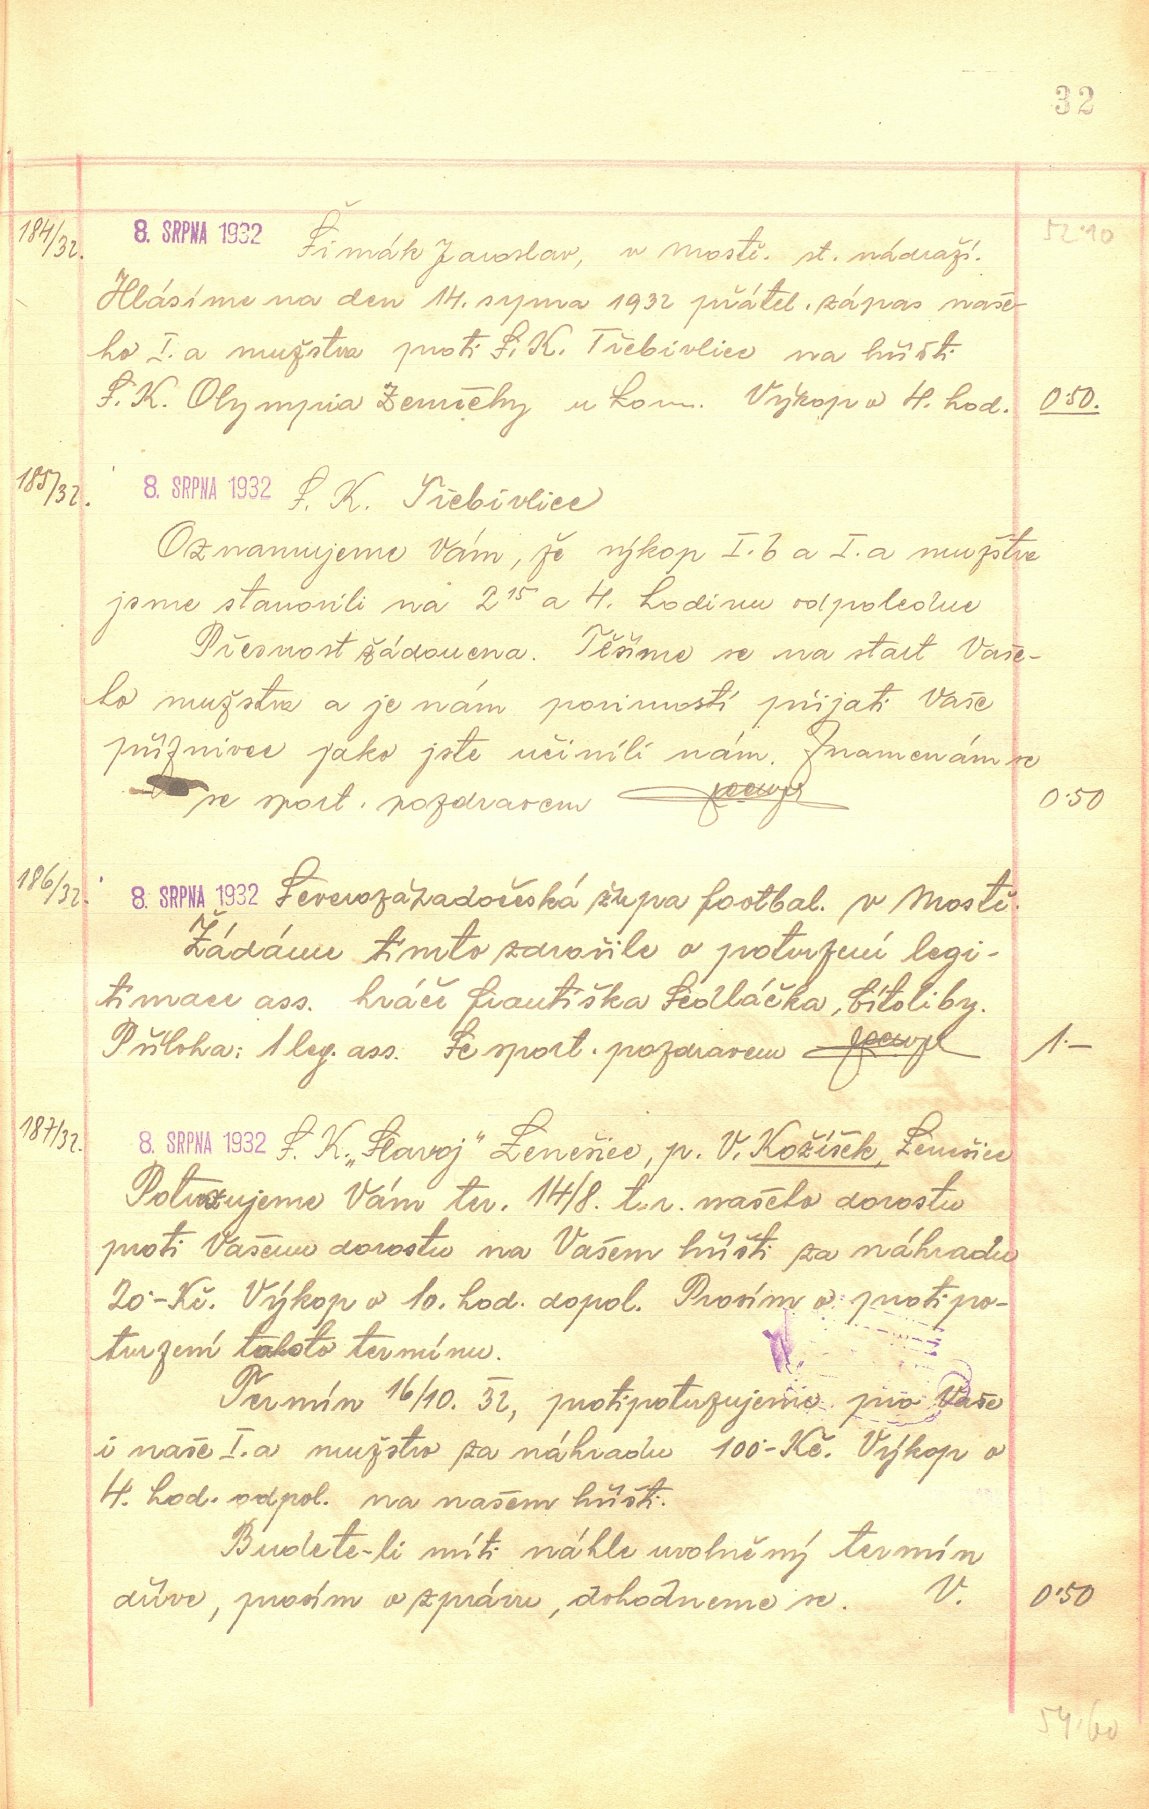 32
52·10
184/32. 8. SRPNA 1932 Šimák Jaroslav, v Mostě. st. nádraží.
Hlásíme na den 14. srpna 1932 přátel. zápas naše-
ho I. a mužstva proti S. K. Třebívlice na hřišti
S. K. Olympia Zeměchy u Loun. Výkop o 4. hod. 0·50.
185/32. 8. SRPNA 1932 S. K. Třebívlice
Oznamujeme Vám, že výkop I. b a I. a mužstva
jsme stanovili na 2 15 a 4. hodinu odpoledne
Přesnost žádoucna. Těšíme se na start Vaše-
ho mužstva a je nám povinností přijati Vaše
příznivce jako jste učinili nám. Znamenám se
se sport. pozdravem 0·50
186/32. 8. SRPNA 1932 Severozápadočeská župa footbal. v Mostě.
Žádáme tímto zdvořile o potvrzení legi-
timace ass. hráče Františka Sedláčka, Cítoliby.
Příloha: 1 leg. ass. Se sport. pozdravem 1·—
187/32. 8. SRPNA 1932 S. K. „Slavoj" Lenešice, p. V. Kožíšek, Lenešice
Potvrzujeme Vám ter. 14/8. t. r. našeho dorostu
proti Vašemu dorostu na Vašem hřišti za náhradu
20·- Kč. Výkop o 10. hod. dopol. Prosím o protipo-
tvrzení tohoto termínu.
Termín 16/10. 32, protipotvrzujeme pro Vaše
i naše I. a mužstvo za náhradu 100·- Kč. Výkop o
4. hod. odpol. na našem hřišti.
Budete-li míti náhle uvolněný termín
dříve, prosím o zprávu, dohodneme se. V. 0·50
54·60